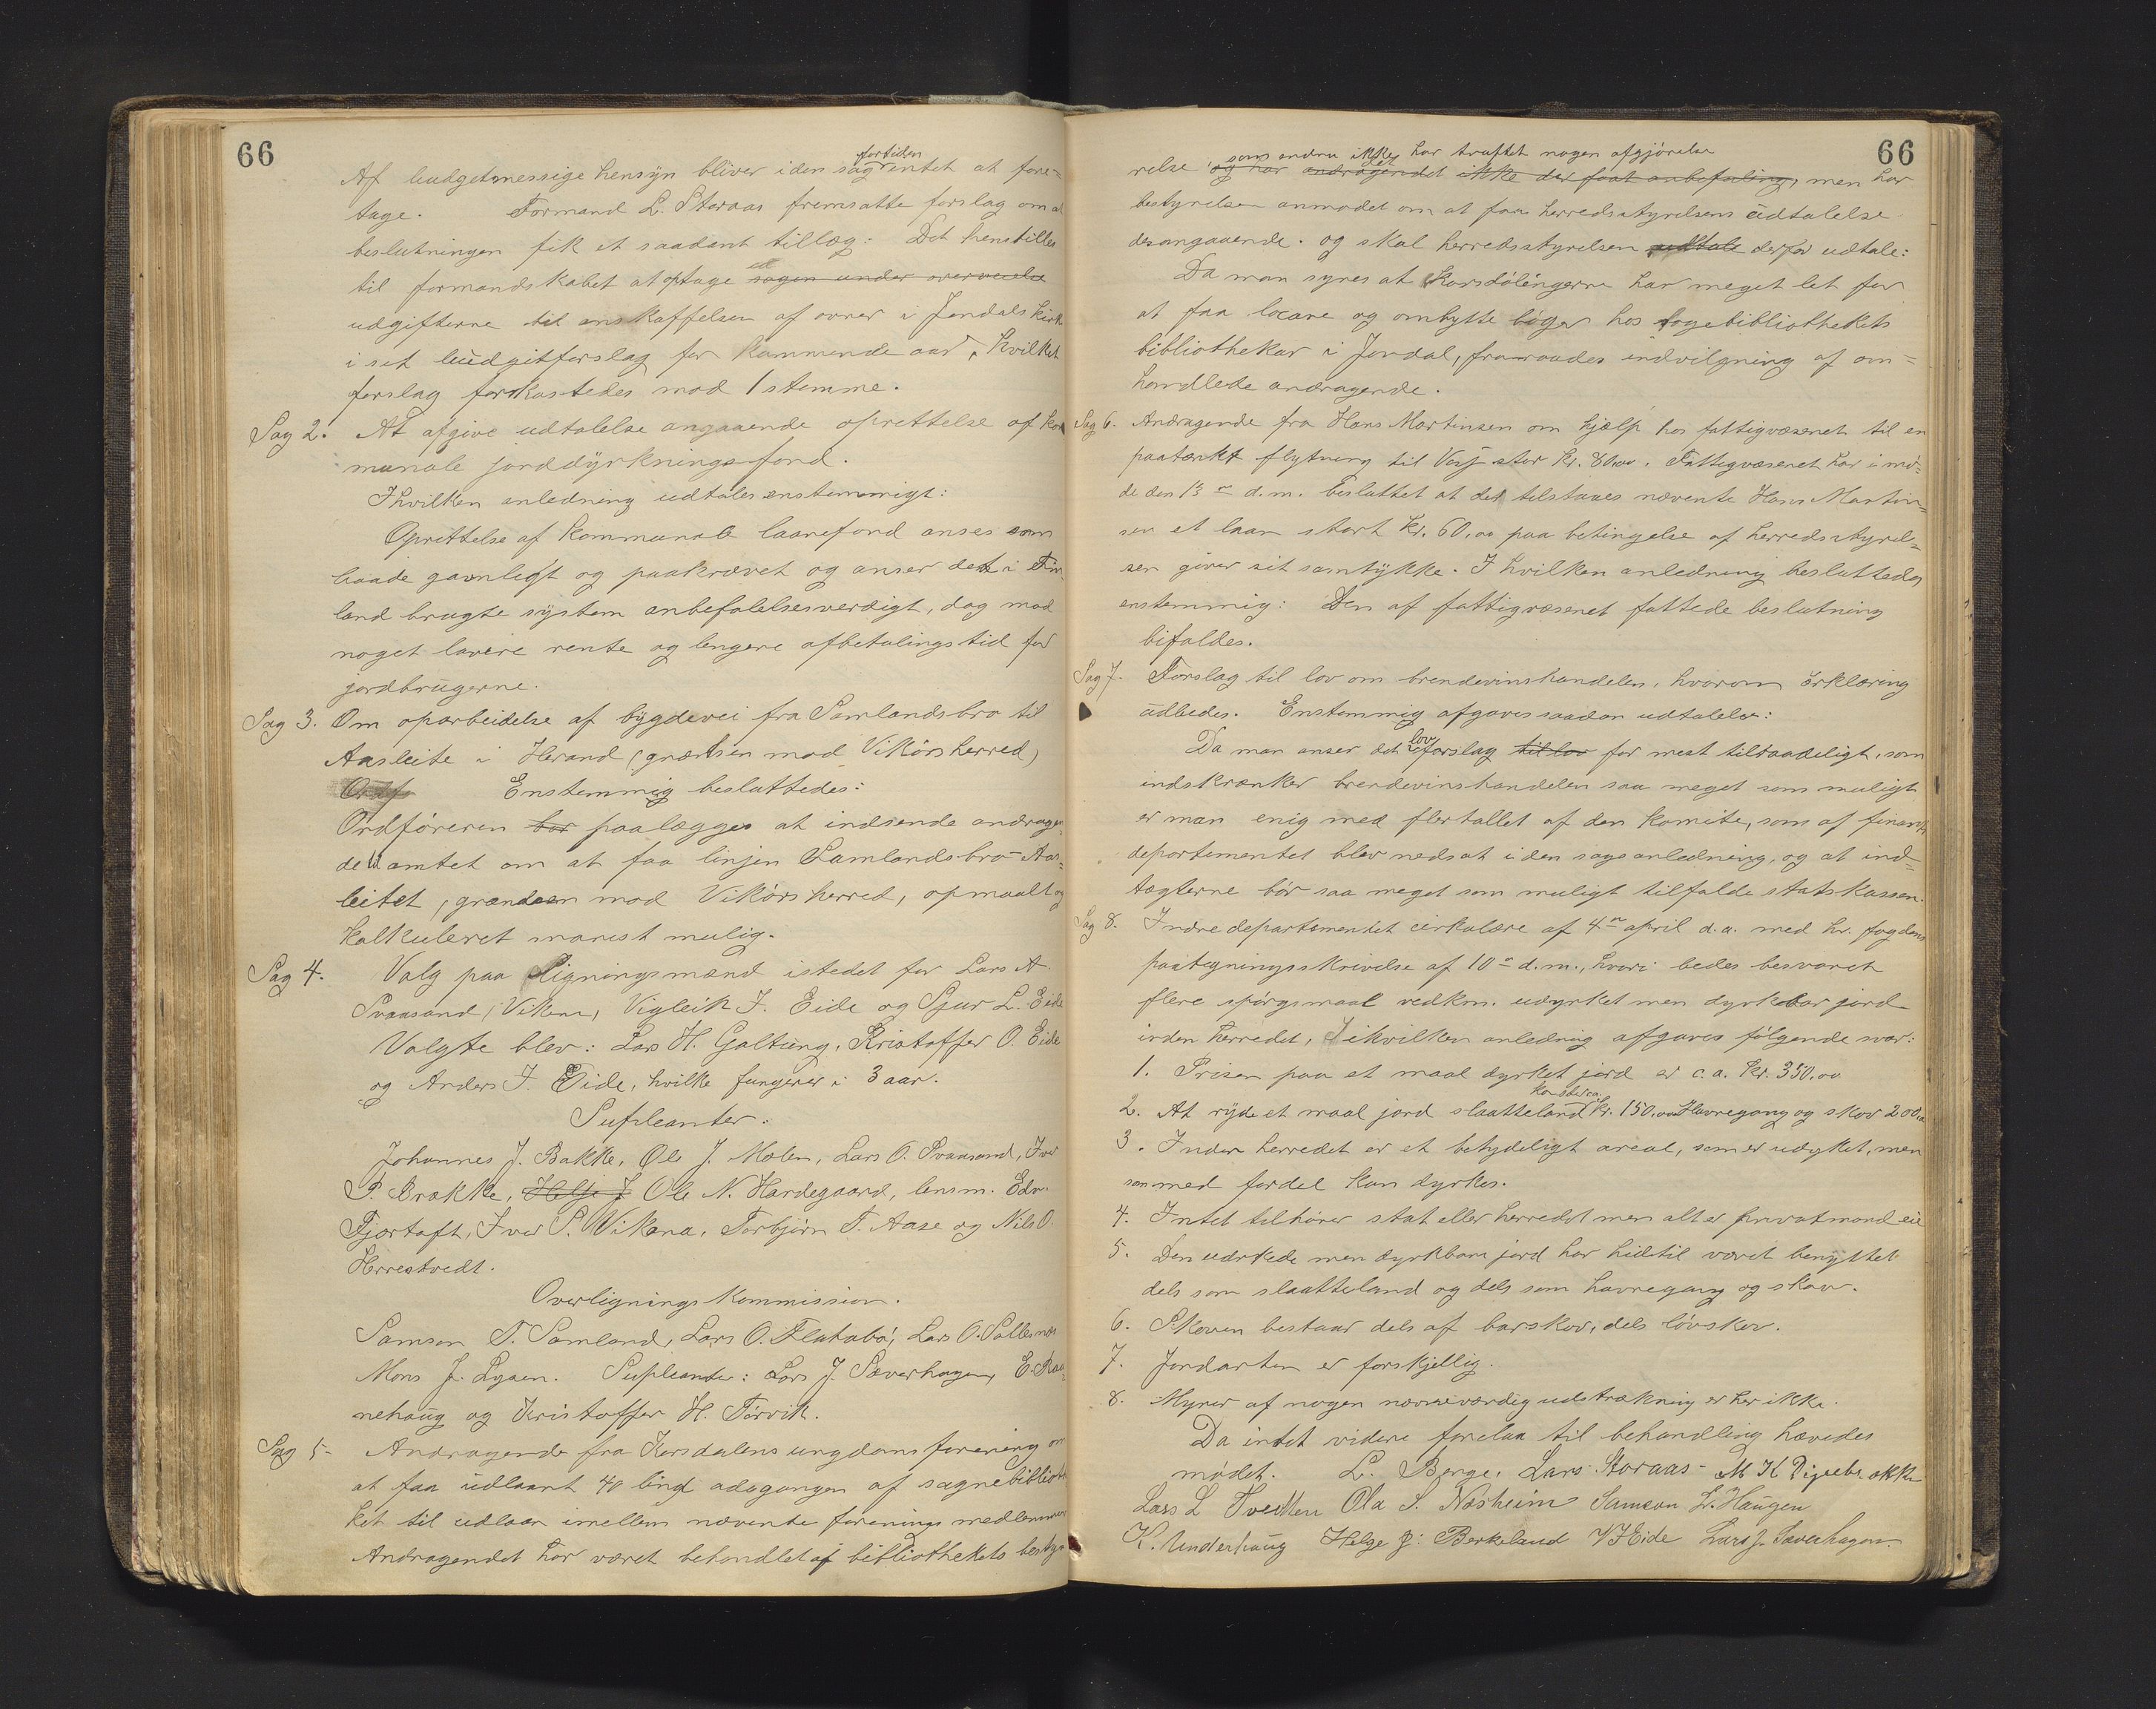 66
fortiden
Af budgetmessige hensyn bliver i den sag intet at fore=
tage. Formand L. Storaas fremsatte forslag om at
beslutningen fik et saadant tillæg: Det henstilles
til formandskabet at optage sagen under overveielse
udgifterne til anskaffelsen af ovner i Jondals kirke
i sit budgitforslag for kommende aar, hvilket
forslag forkastedes mod 1 stemme.
Sag 2. At afgive udtalelse angaaende oprettelse af kom
munale jorddyrkningsfond.
I hvilken anledning udtales enstemmigt:
Oprettelse af kommunale laanefond anses som
baade gavnligt og paakrævet og anser det i Fin
land brugte system anbefalelsesverdigt, dog med
noget lavere rente og lengere afbetalingstid for
jordbrugerne.
Sag 3. Om oparbeidelse af bygdevei fra Samlandsbro til
Aasleite i Herand (grændsen mod Vikørs herred)
Enstemmig besluttedes:
Ordføreren bør paalægges at indsende andragen
de til amtet om at faa linjen Samlandsbro - Aas=
leitet, grændsen mod Vikørs herred, opmaalt og
kalkuleret snarest mulig.
Sag 4. Valg paa Ligningsmænd istedet for Lars A
Svaasand, Vikene, Vigleik J. Eide og Sjur L. Eide
Valgte blev: Lars H. Galtung, Kristoffer O. Eide
og Anders J. Eide, hvilke fungerer i 3 aar.
Supleanter:
Johannes J. Bakke, Ole J. Molen, Lars O. Svaasand, Iver
P. Brakke, Helje J Ole N. Hardegaard, lensm. Edv.
Fjørtoft, Iver P. Vikena, Torbjørn T. Aase og Nils O.
Herrestvedt.
Overligningskommission.
Samson T. Samland, Lars O. Flatabø, Lars O. Sollesnes
Mons J. Lyaen. Supleanter: Lars J. Sæverhagen, E. Raa=
nehaug og Kristoffer H. Tørvik.
Sag 5. Andragende fra Korsdalens ungdomsforening om
at faa udlaant 40 bind adagangen af sognebibliothe
ket til udlaan imellem nævnte forenings medlemmer
Andragendet har været behandlet af bibliothekets besty=
66
som endnu ikke har truffet nogen afgjørelse
relse og har andragendet ikke der faat anbefaling, men har
bestyrelsen anmodet om at faa herredsstyrelsens udtalelse
desangaaende. og skal herredsstyrelsen udtale derfor udtale:
Da man synes at Korsdølingerne har meget let for
at faa laane og ombytte bøger hos sognebibliothekets
bibliothekar i Jondal, fraraades indvilgning af om=
handlede andragende.
Sag 6. Andragende fra Hans Martinsen om hjælp hos fattigvæsenet til en
paatænkt flytning til Voss stor kr. 80,00. Fattigvæsenet har i mø=
de den 13de d.m. besluttet at det tilstaaes nævnte Hans Martin=
sen et laan stort kr. 60,00 paa betingelse af herredsstyrel=
sen giver sit samtykke. I hvilken anledning besluttedes
enstemmig: Den af fattigvæsenet fattede beslutning
bifaldes.
Sag 7. Forslag til lov om brendevinshandelen, hvorom erklæring
udbedes. Enstemmig afgaves saadan udtalelse:
Da man anser det lov forslag til lov for mest tilraadeligt, som
indskrænker brendevinshandelen saa meget som muligt
er man enig med flertallet af den komite, som af finants
departementet blev nedsat i den sags anledning, og at ind=
tægterne bør saa meget som muligt tilfalde statskassen.
Sag 8. Indre departementet cirkulære af 4de april d.a. med hr. fogdens
paategningsskrivelse af 10de d.m., hvori bedes besvaret
flere spørgsmaal vedkom. udyrket men dyrkbar jord
inden herredet, I ihvilken anledning afgaves følgende svar:
1. Prisen paa et maal dyrket jord er c.a. kr. 350,00
koster ca.
2. At ryde et maal jord slaatteland kr. 150,00 Havnegang og skov 200,00
3. Inden herredet er et betydeligt areal, som er udyrket, men
som med fordel kan dyrkes.
4. Intet tilhører stat eller herredet men alt er privatmands eie
5. Den udyrkede men dyrkbare jord har hidtil været benyttet
dels som slaatteland og dels som havnegang og skov.
6. Skoven bestaar dels af barskov, dels løvskov.
7. Jordarten er forskjellig.
8. Myrer af nogen nævneværdig udstrækning er her ikke.
Da intet videre forelaa til behandling hævedes
mødet. L. Berge, Lars Storaas - M K Digrebrakke
Lars L Tveitten Ola S. Næsheim Samson L. Haugen
K. Underhaug Helge J. Berkeland V J Eide Lars J. Sæverhagen.